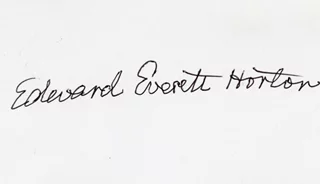 Edward Everett Horton